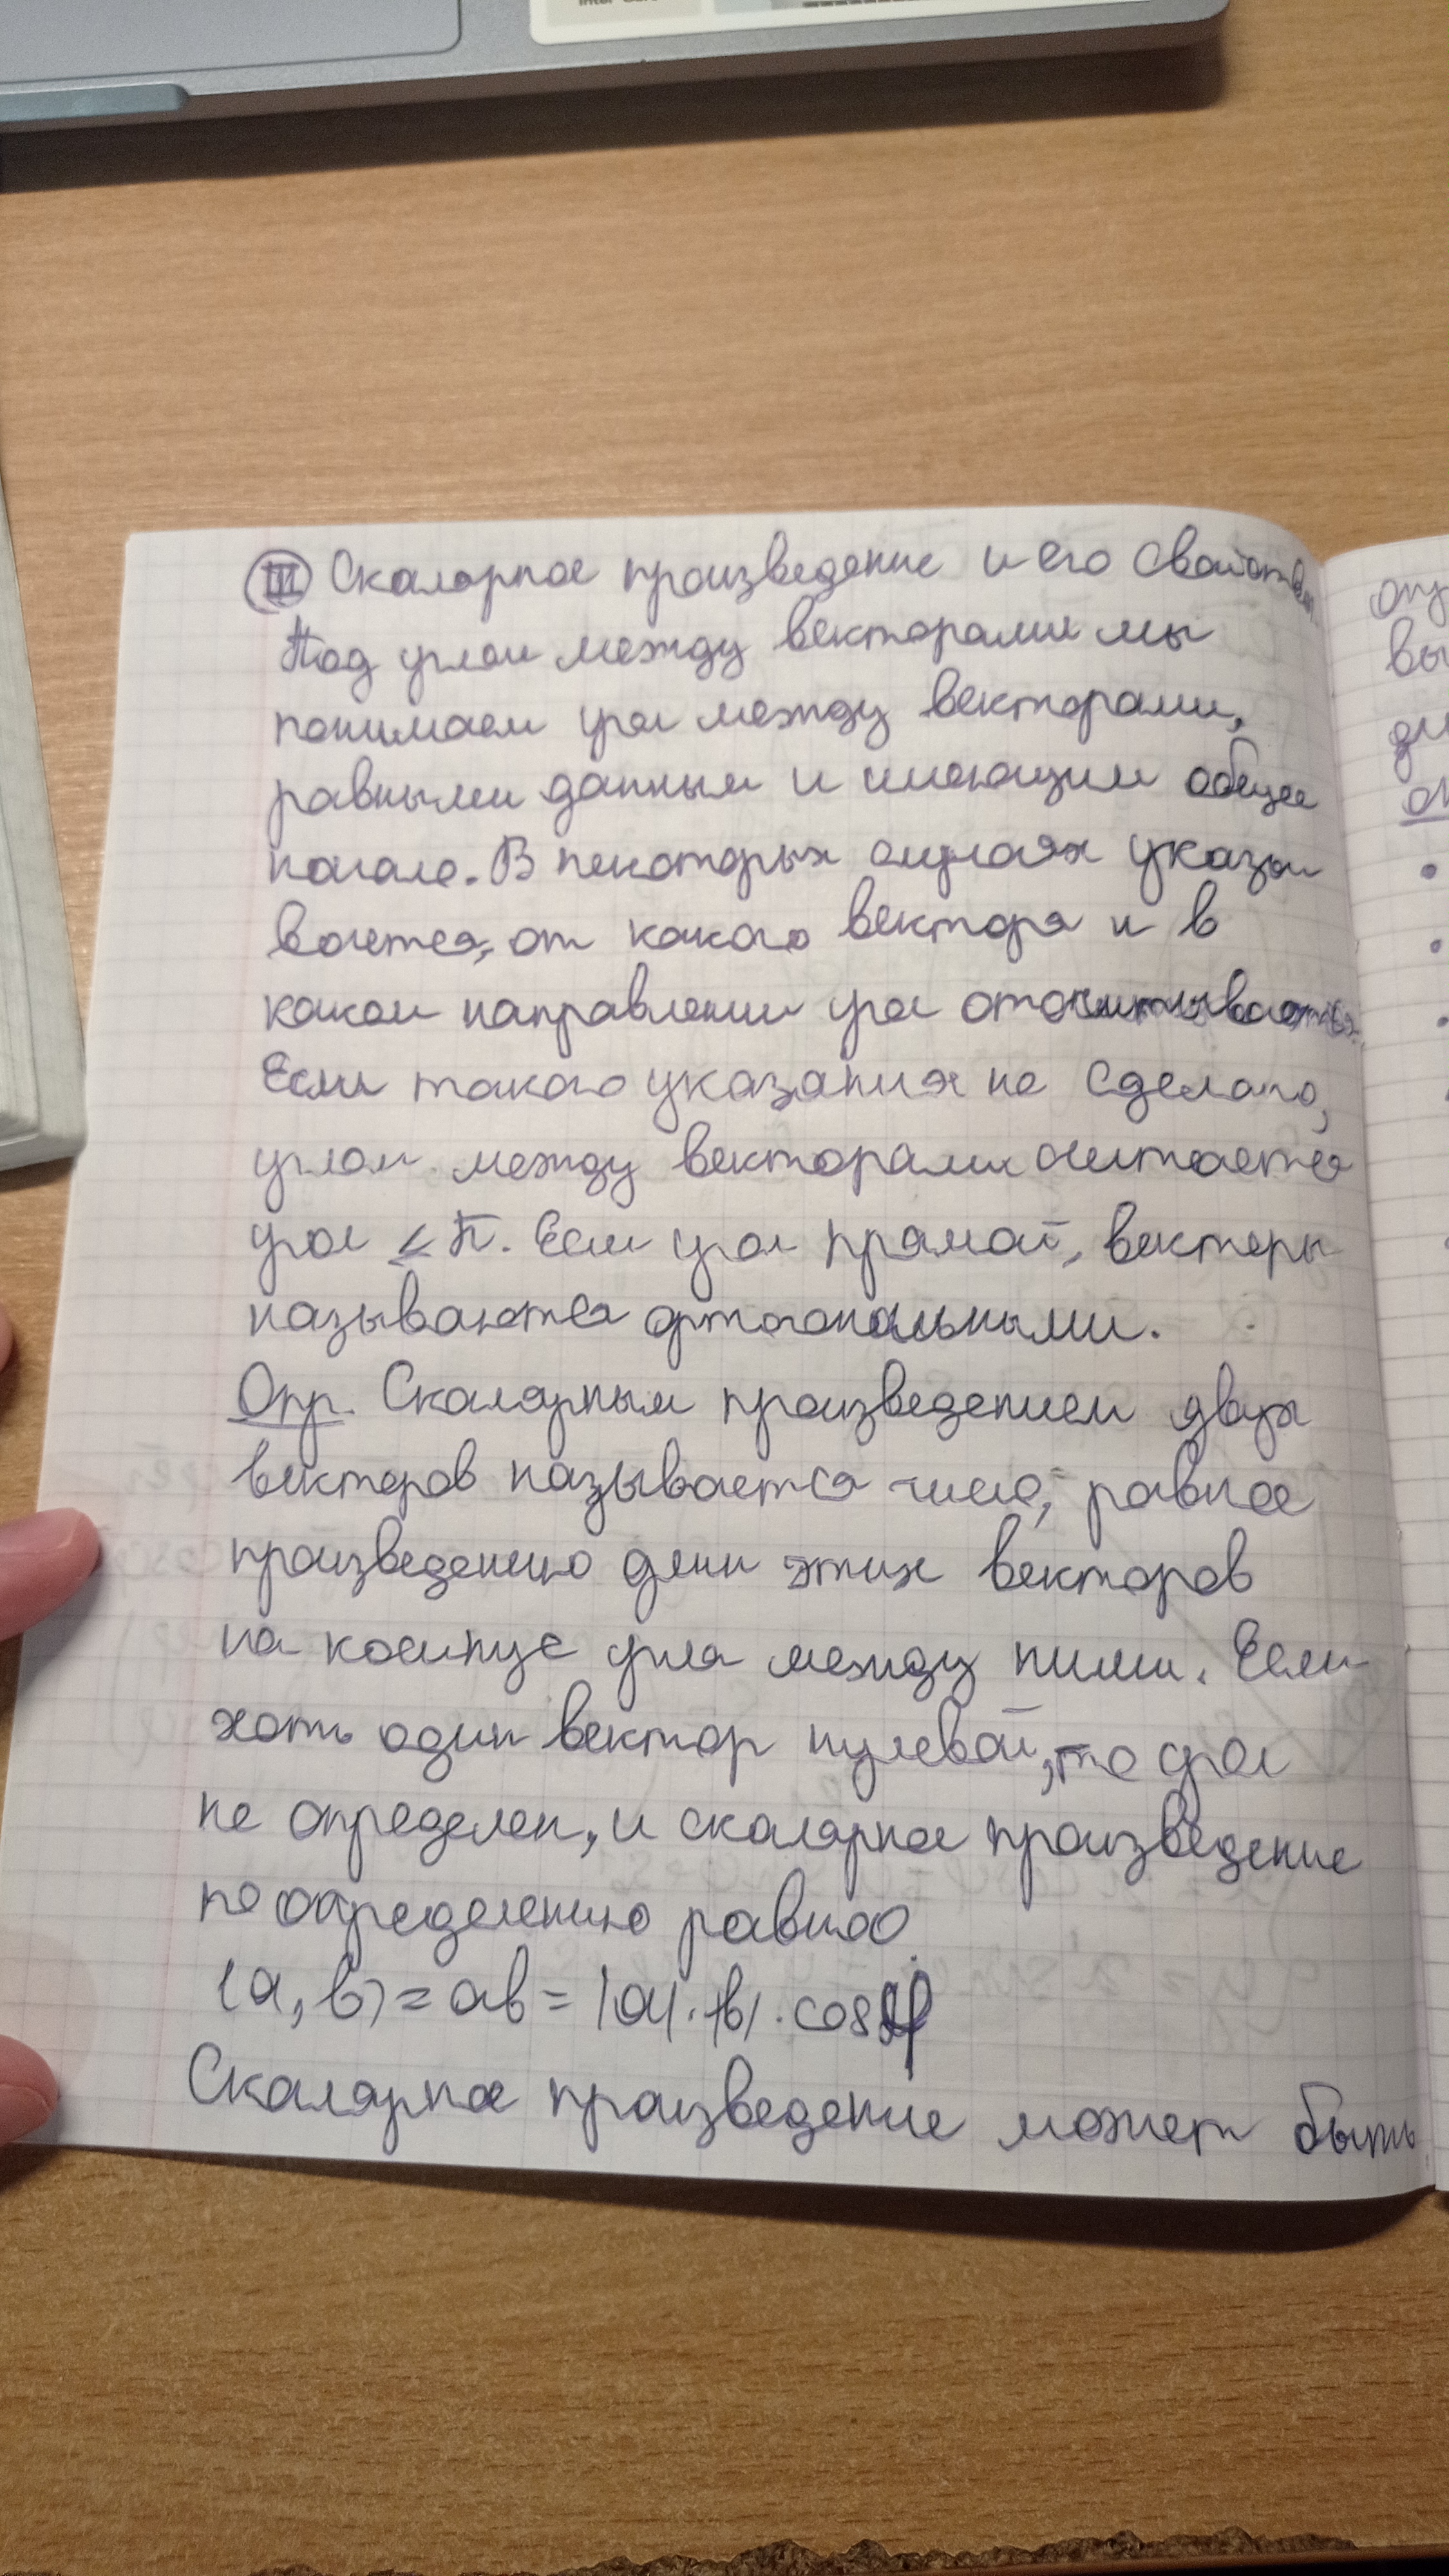 III Скалярное произведение и его свойства
Под углом между векторами мы
понимаем угол между векторами,
равными данным и имеющим общее
начало. В некоторых случаях указы
вается, от какого вектора и в
каком направлении угол отсчитывается.
Если такого указания не сделано,
углом между векторами считается
угол ≤ π. Если угол прямой, векторы
называются ортогональными.
Опр. Скалярным произведением двух
векторов называется число, равное
произведению длин этих векторов
на косинус угла между ними. Если
хоть один вектор нулевой, то угол
не определен, и скалярное произведение
по определению равно 0.
(a, b) = ab = |a|·|b|·cos φ
Скалярное произведение может быть
вы